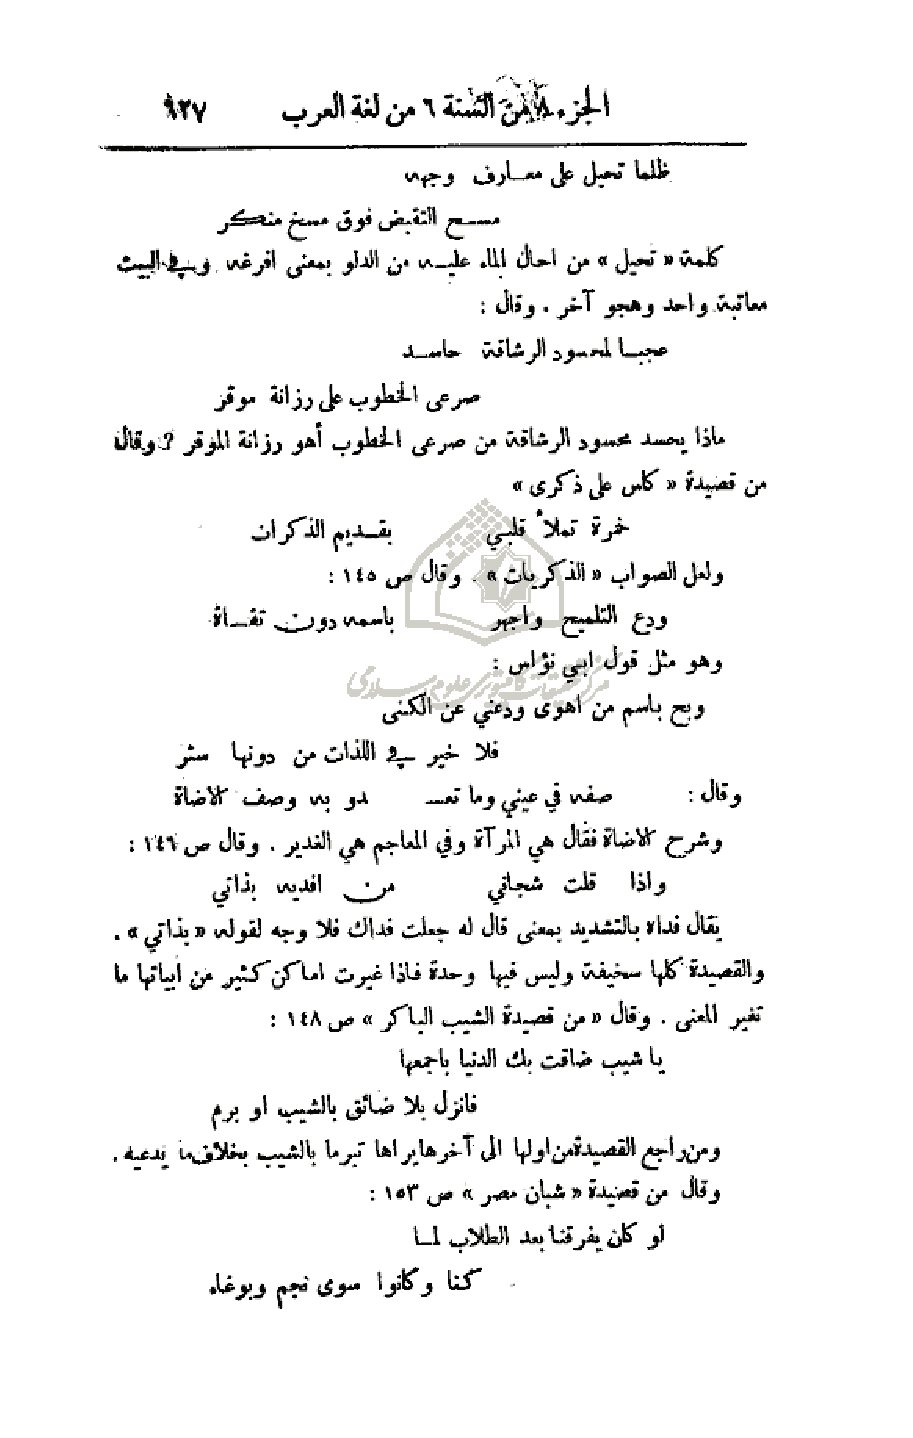 الجزء ٨ من السنة ٦ من لغة العرب ٦٢٧
ظلما تحيل على معارف وجهه
مسح التقبض فوق مسخ منكر
كلمة « تحيل » من احال الماء عليه من الدلو بمعنى افرغه وفي البيت
معاتبة واحد وهجو آخر . وقال :
عجبا لمحسود الرشاقة حاسد
صرعى الخطوب على رزانة موقر
ماذا يحسد محسود الرشاقة من صرعى الخطوب أهو رزانة الموقر ? وقال
من قصيدة « كاس على ذكرى »
خمرة تملأ قلبي بقديم الذكرات
ولعل الصواب « الذكريات » . وقال ص ١٤٥ :
ودع التلميح واجهر باسمه دون تقاة
وهو مثل قول ابي نؤاس :
وبح باسم من اهوى ودعني عن الكنى
فلا خير في اللذات من دونها ستر
وقال : صفه في عيني وما تعـ ـدو به وصف الاضاة
وشرح الاضاة فقال هي المرآة وفي المعاجم هي الغدير . وقال ص ١٤٦ :
واذا قلت شجاني من افديه بذاتي
يقال فداه بالتشديد بمعنى قال له جعلت فداك فلا وجه لقوله « بذاتي » .
والقصيدة كلها سخيفة وليس فيها وحدة فاذا غيرت اماكن كثير من أبياتها ما
تغير المعنى . وقال « من قصيدة الشيب الباكر » ص ١٤٨ :
يا شيب ضاقت بك الدنيا باجمعها
فانزل بلا ضائق بالشيب او برم
ومن راجع القصيدة من اولها الى آخرها يراها تبرما بالشيب بخلاف ما يدعيه .
وقال من قصيدة « شبان مصر » ص ١٥٣ :
لو كان يفرقنا بعد الطلاب لما
كنا وكانوا سوى نجم وبوغاء
مركز تحقيقات كامپيوتری علوم اسلامی